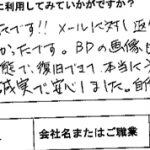 に利用してみていかがですか？
たです!! メールに対し返
かったです。BDの画像
態で、復旧できて本当に
誠実で安心しました。
会社名またはご職業